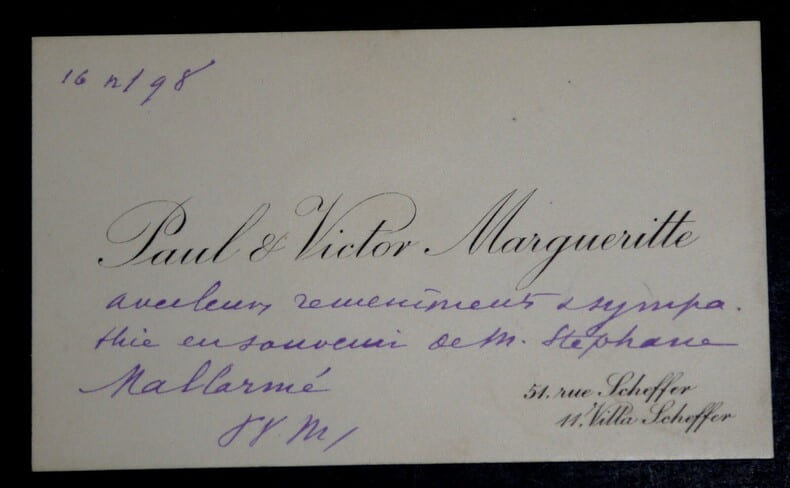 16 n/98
Paul & Victor Margueritte
avec leurs remerciments & sympa-
thie en souvenir de M. Stephane
Mallarmé
51, rue Scheffer
11, Villa Scheffer